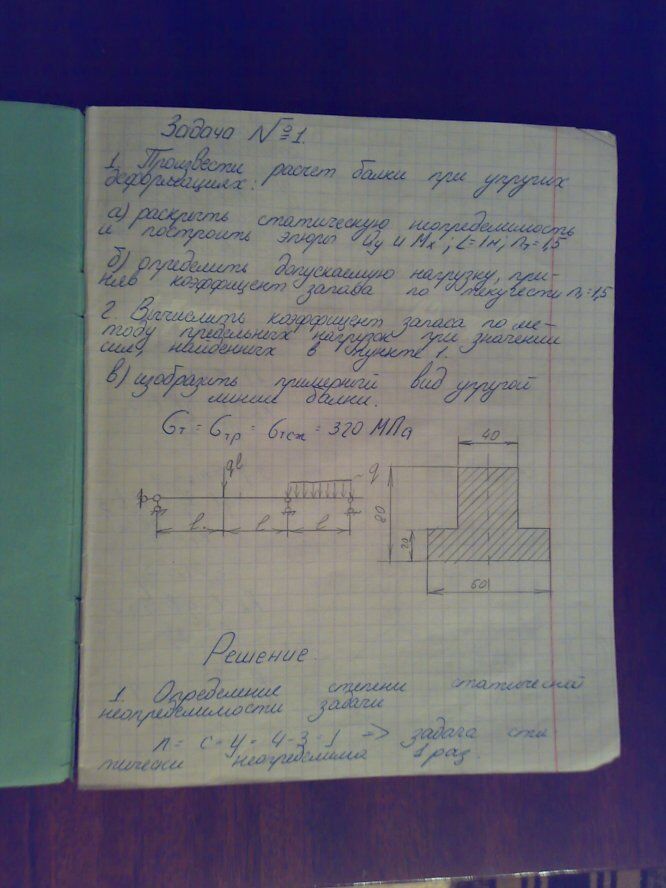 Задача №1.
1. Произвести расчет балки при упругих
деформациях:
а) раскрыть статическую неопределимость
и построить эпюры Qy и Mx; L=1м; nт=1,5
б) определить допускаемую нагрузку, при-
няв коэффицент запаса по текучести n=1,5
2. Вычислить коэффицент запаса по ме-
тоду предельных нагрузок при значении
сил, найденных в пункте 1.
в) изобразить примерный вид упругой
линии балки.
σт = σтр = σтсж = 320 МПа
40
qℓ
q
80
20
ℓ ℓ ℓ
60
Решение.
1. Определение степени статической
неопределимости задачи
n = с - у = 4-3 = 1 => задача ста
тически неопределима 1 раз.